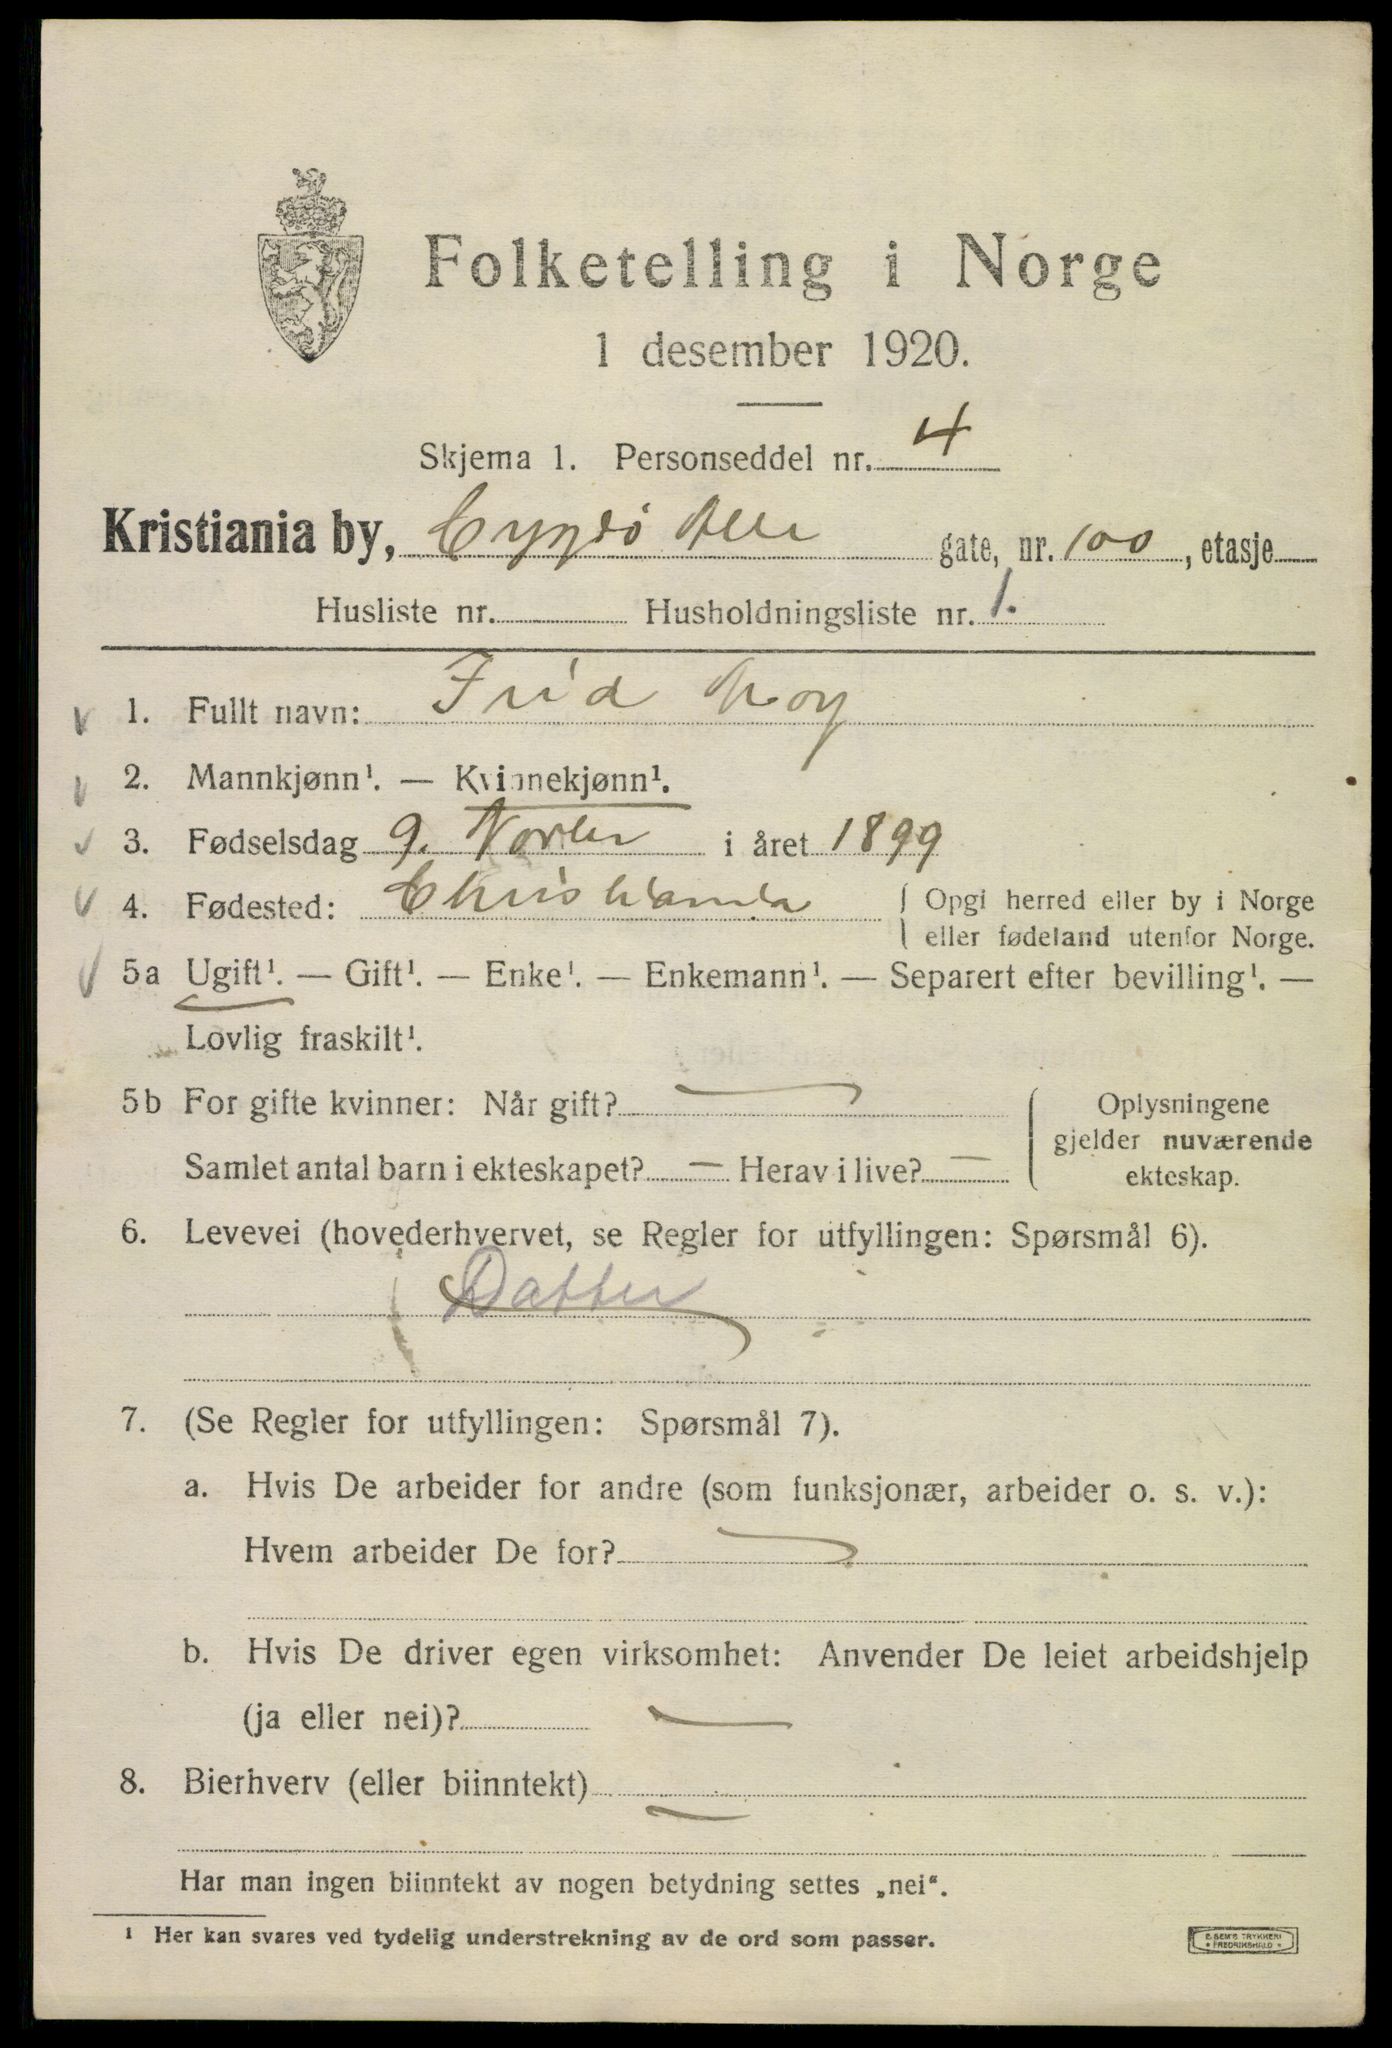 Folketelling i Norge
1 desember 1920.
Skjema 1. Personseddel nr. 4
Kristiania by, Bygdö Alle gate, nr. 100, etasje
Husliste nr. Husholdningsliste nr. 1.
1. Fullt navn: Frid
2. Mannkjønn¹. — Kvinnekjønn¹.
3. Fødselsdag 9. Novbr i året 1899
4. Fødested: Christiania { Opgi herred eller by i Norge
eller fødeland utenfor Norge.
5a Ugift¹. — Gift¹. — Enke¹. — Enkemann¹. — Separert efter bevilling¹. —
Lovlig fraskilt¹.
5b For gifte kvinner: Når gift? —
Samlet antal barn i ekteskapet? — Herav i live? —
{ Oplysningene
gjelder nuværende
ekteskap.
6. Levevei (hovederhvervet, se Regler for utfyllingen: Spørsmål 6).
Datter
7. (Se Regler for utfyllingen: Spørsmål 7).
a. Hvis De arbeider for andre (som funksjonær, arbeider o. s. v.):
Hvem arbeider De for? —
b. Hvis De driver egen virksomhet: Anvender De leiet arbeidshjelp
(ja eller nei)? —
8. Bierhverv (eller biinntekt) —
Har man ingen biinntekt av nogen betydning settes „nei“.
¹ Her kan svares ved tydelig understrekning av de ord som passer.
E. SEM'S TRYKKERI
* FREDRIKSHALD *